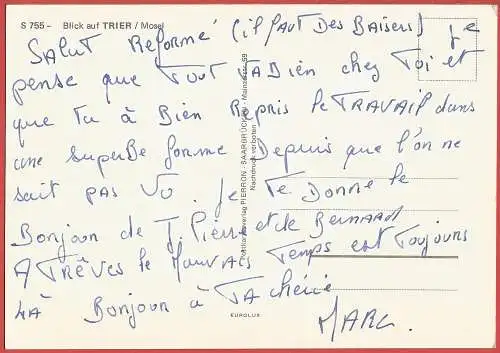 S 755 – Blick auf TRIER / Mosel
Salut Reformé (il faut Des Baisers) je
pense que Tout VA Bien chez Toi et
que Tu à Bien Repris le TRAVAIL dans
une superbe forme Depuis que l'on ne
sait pas VU. Je Te Donne le
Bonjour de J. Pierre et de BERNARD
A TRÊVES le Mauvais Temps est Toujours
LÀ Bonjour à TA chérie
MARC.
PIERRON - SAARBRÜCKEN - Mainzerstr. 59
Nachdruck verboten
EUROLUX